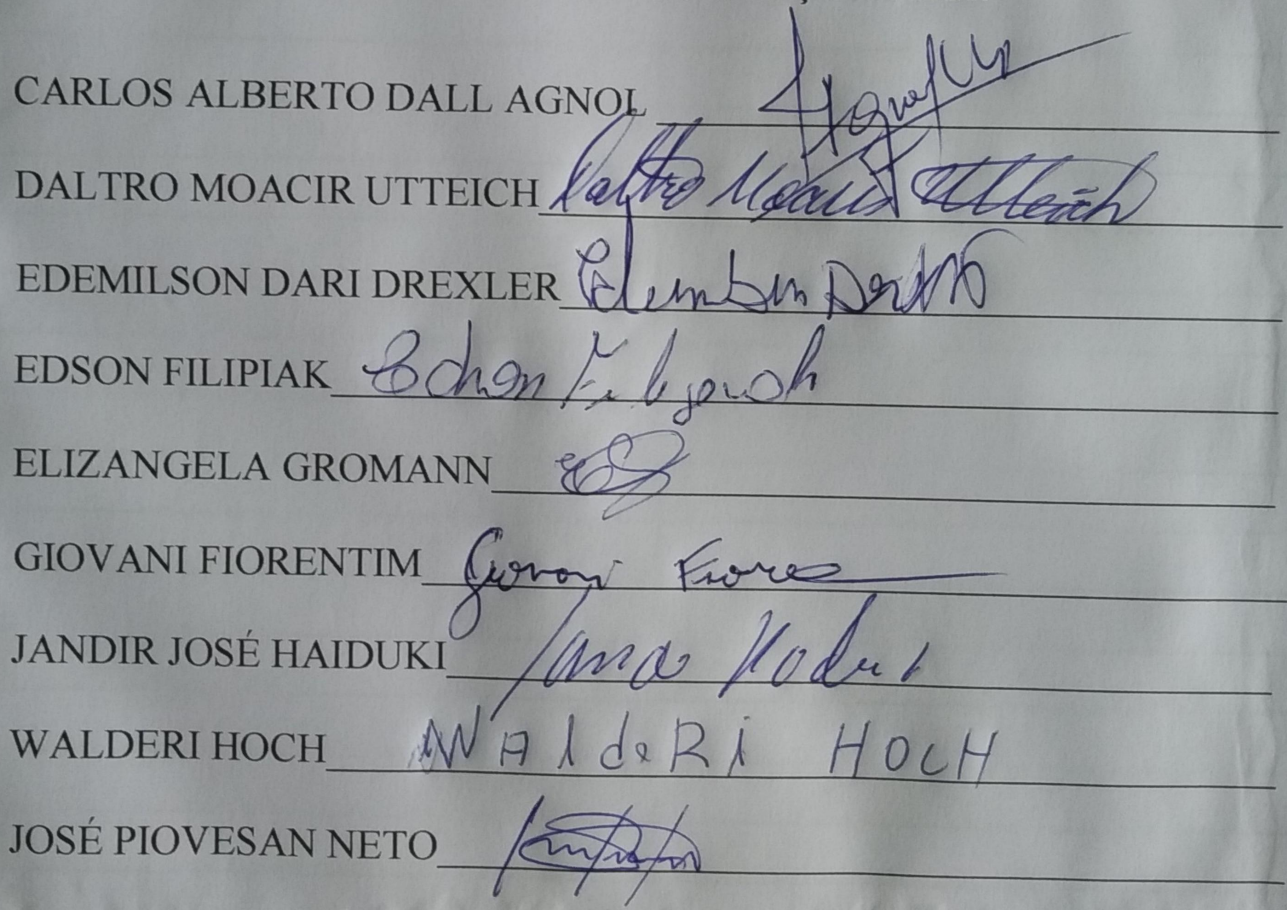 CARLOS ALBERTO DALL AGNOL
DALTRO MOACIR UTTEICH Daltro Moacir Utteich
EDEMILSON DARI DREXLER
EDSON FILIPIAK Edson Filipiak
ELIZANGELA GROMANN
GIOVANI FIORENTIM Giovani
JANDIR JOSÉ HAIDUKI
WALDERI HOCH WAldeRi HOCH
JOSÉ PIOVESAN NETO